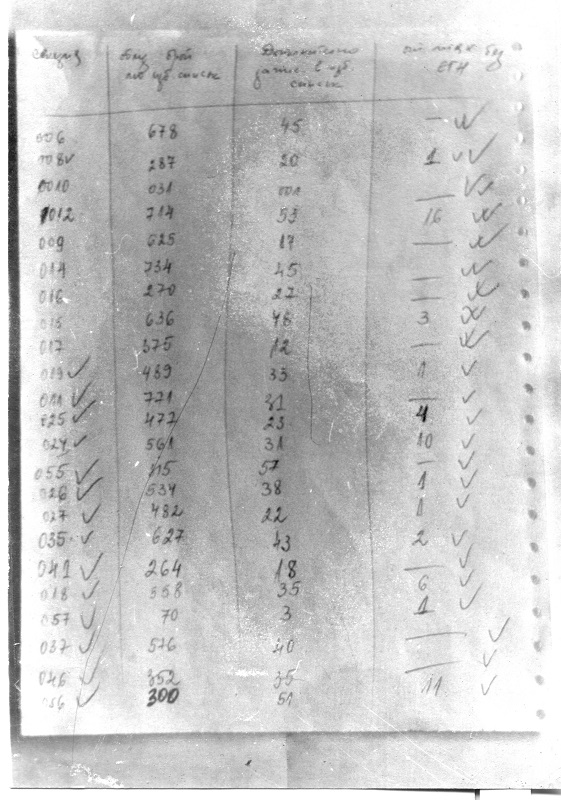 секция общ брой допълнително
по изб. списък в изб. без
списък ЕГН
006 678 45 —
008 287 20 1
0010 031 001 —
012 714 53 16
009 625 17 —
014 734 45 —
016 270 27 —
015 636 48 3
017 375 12 —
019 489 33 1
771 31 —
025 477 23 4
024 561 31 10
055 57 —
026 534 38 1
027 482 22 1
035 627 43 2
041 264 18 —
018 358 35 6
057 70 3 1
037 576 40 —
046 352 35 —
056 300 51 11